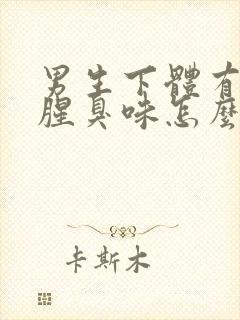 男生下體有
腥臭味怎麼
卡斯木